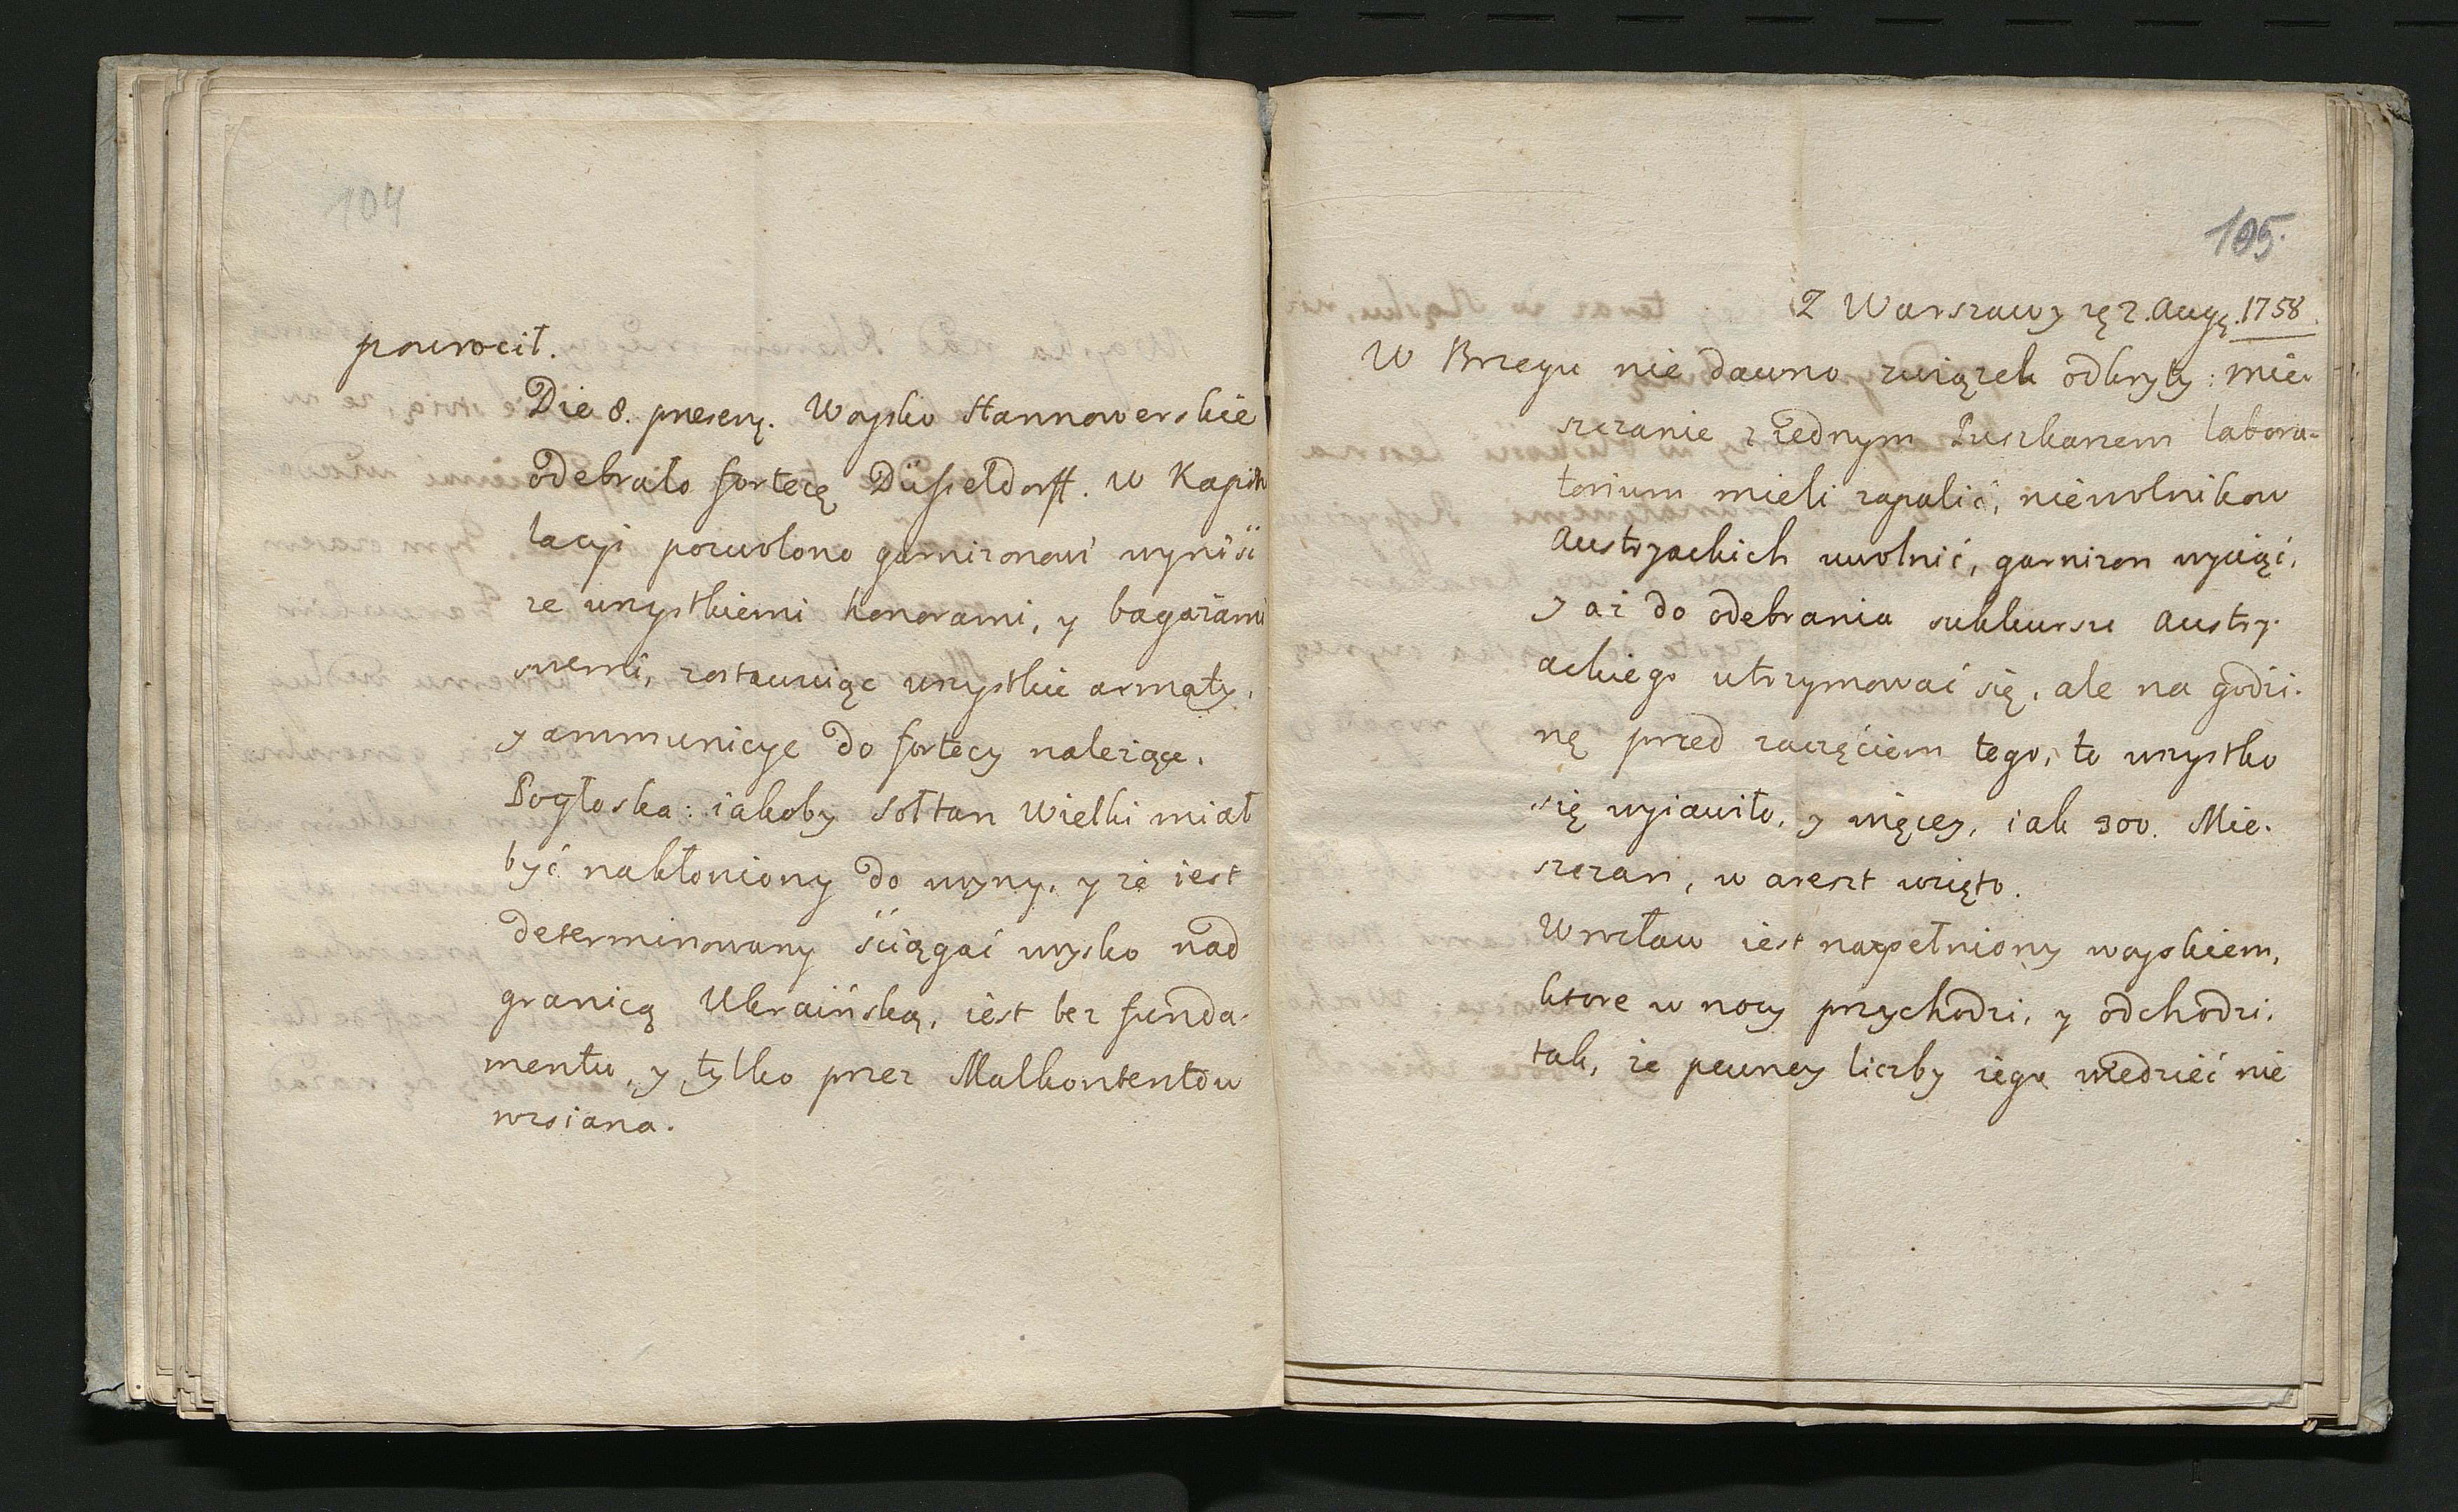 104
powrocił.
Die 8. presenţ. Woysko Hannowerskie
odebrało fortecę Düsseldorff. W Kapitu
lacyi pozwolono garnizonowi wyniść
ze wszystkiemi honorami, y bagażami
swemi, zostawuiąc wszystkie armaty,
y ammunicye do fortecy należące.
Pogłoska: iakoby Sołtan Wielki miał
być nakłoniony do woyny, y że iest
determinowany ściągać woysko nad
granicą Ukraińską, iest bez funda-
mentu, y tylko przez Malkontentów
wzsiana.
105.
Z Warszawy 2. Aug. 1758
W Brzegu nie dawno związek odkryty: mie-
szczanie z iednym Puszkarzem labora-
torium mieli zapalić, niewolnikow
Austryackich uwolnić, garnizon wyciąć,
y aż do odebrania sukkursu Austry-
ackiego utrzymować się, ale na godzi-
nę przed zaczęciem tego, to wszystko
się wyiawiło, y więcey, iak 300. Mie-
szczan, w areszt wzięto.
Wrocław iest napełniony woyskiem,
ktore w nocy przychodzi, y odchodzi,
tak, że pewney liczby iego wiedzieć nie